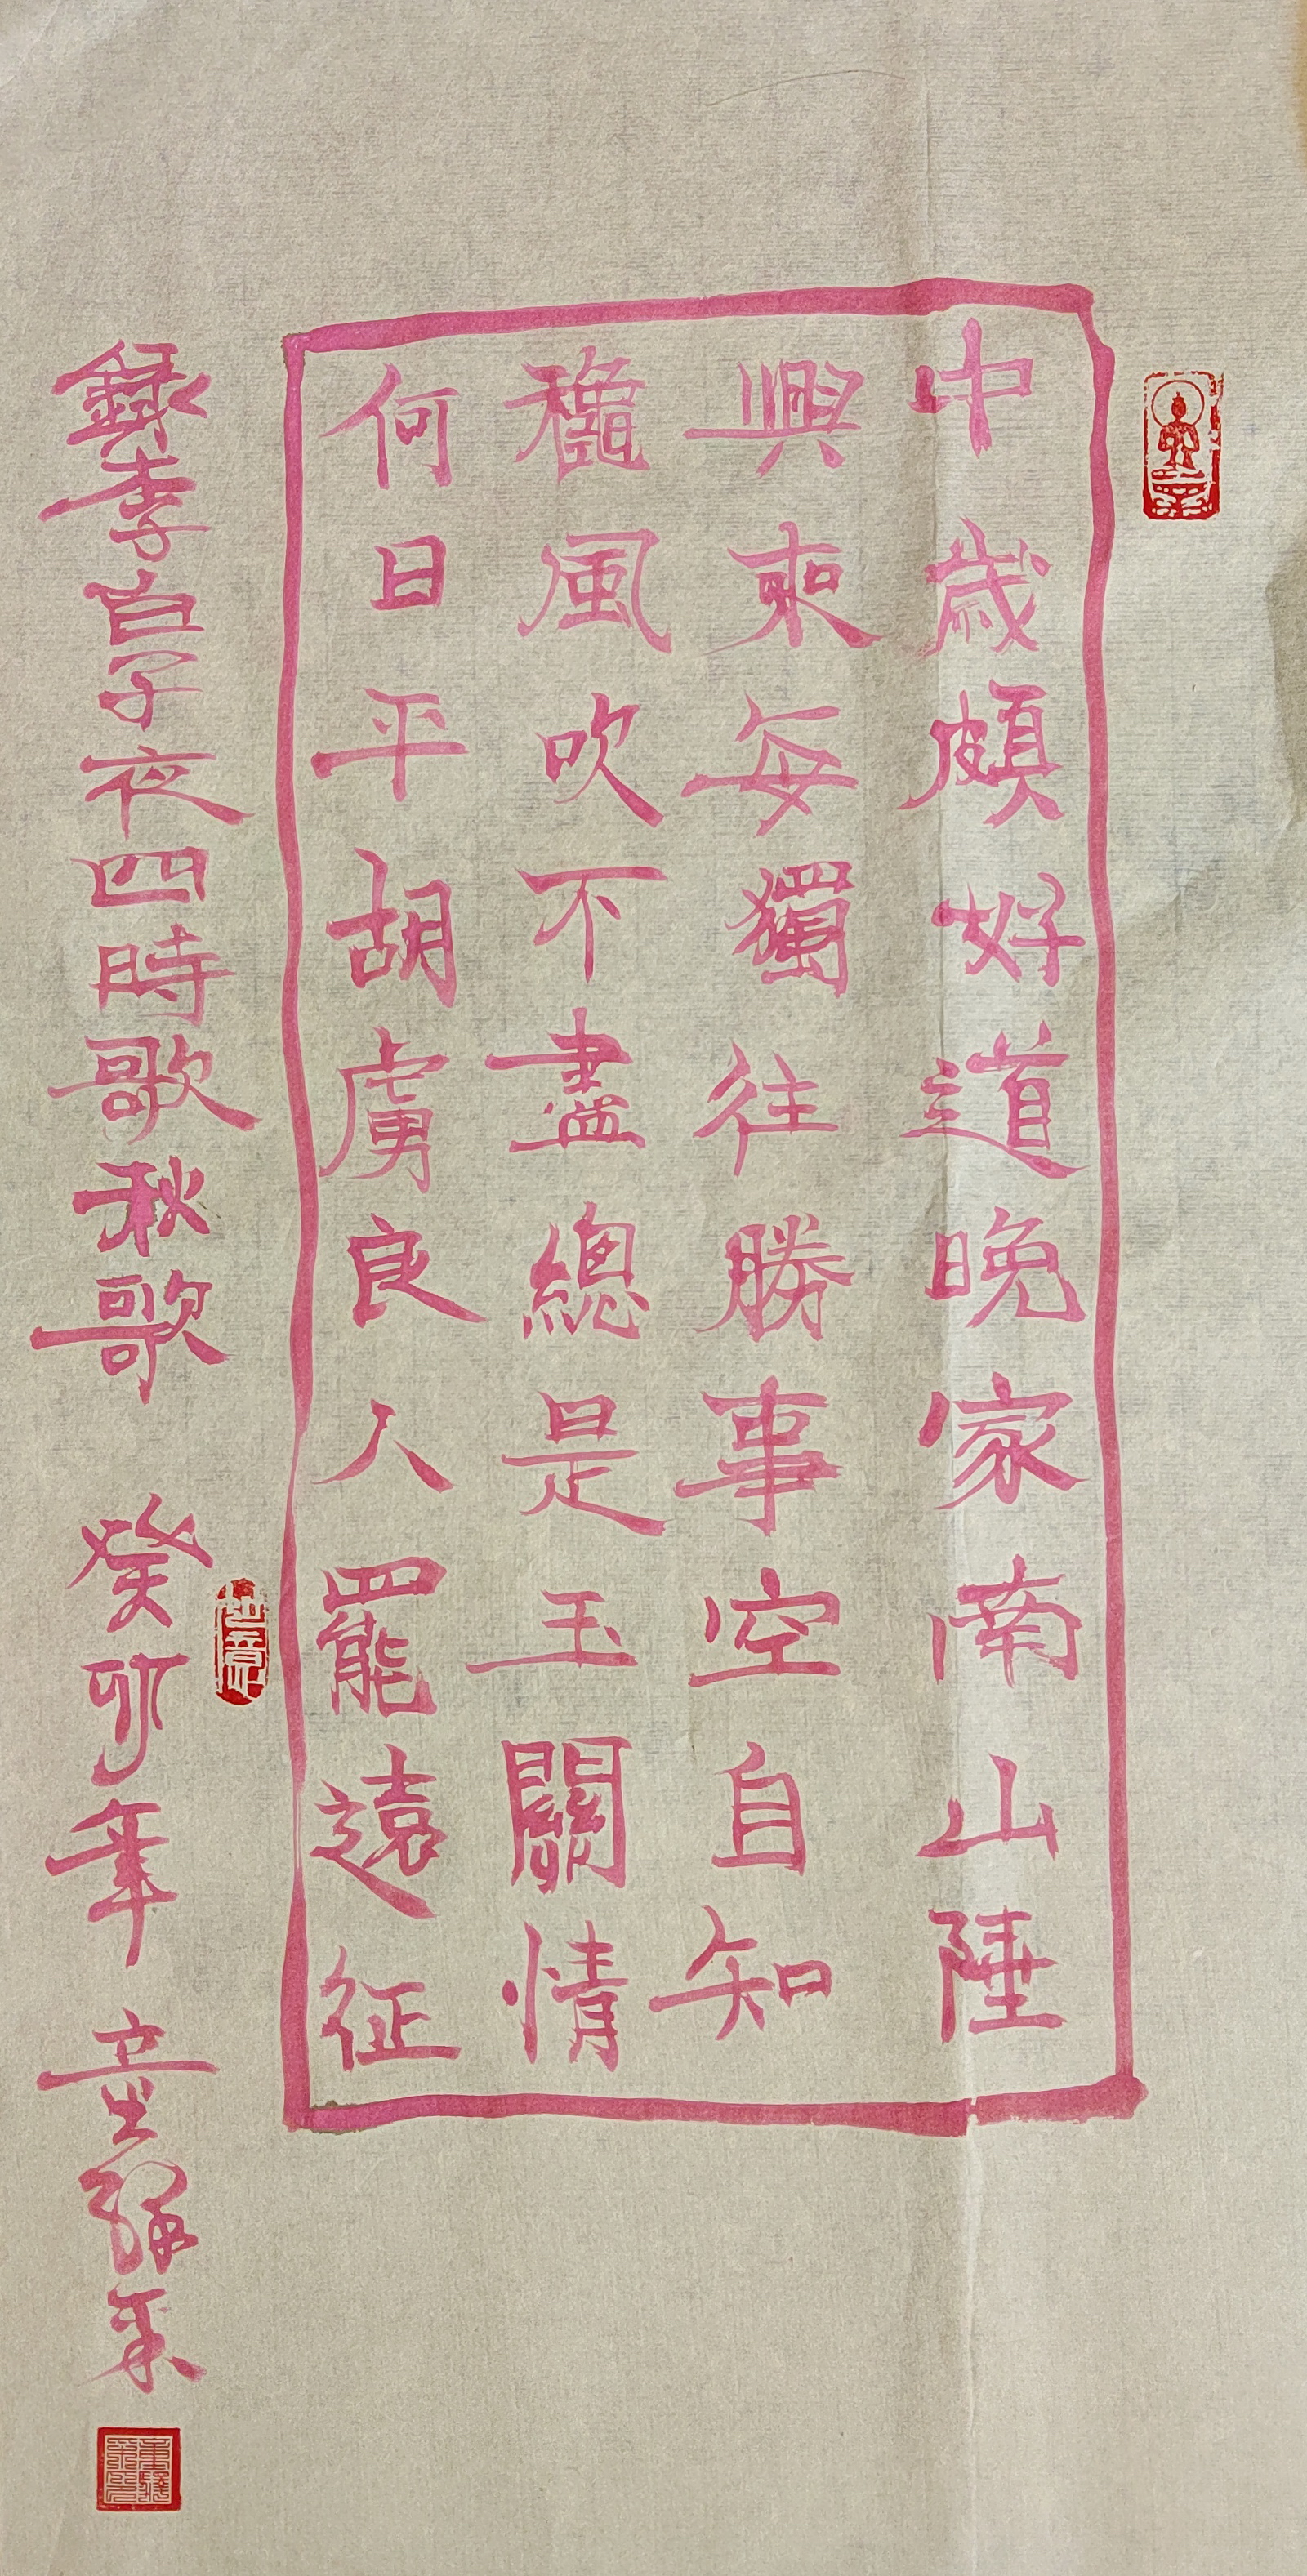 中歲頗好道晚家南山陲
興來每獨往勝事空自知
穐風吹不盡總是玉關情
何日平胡虜良人罷遠征
錄李白子夜四時歌秋歌 癸卯年